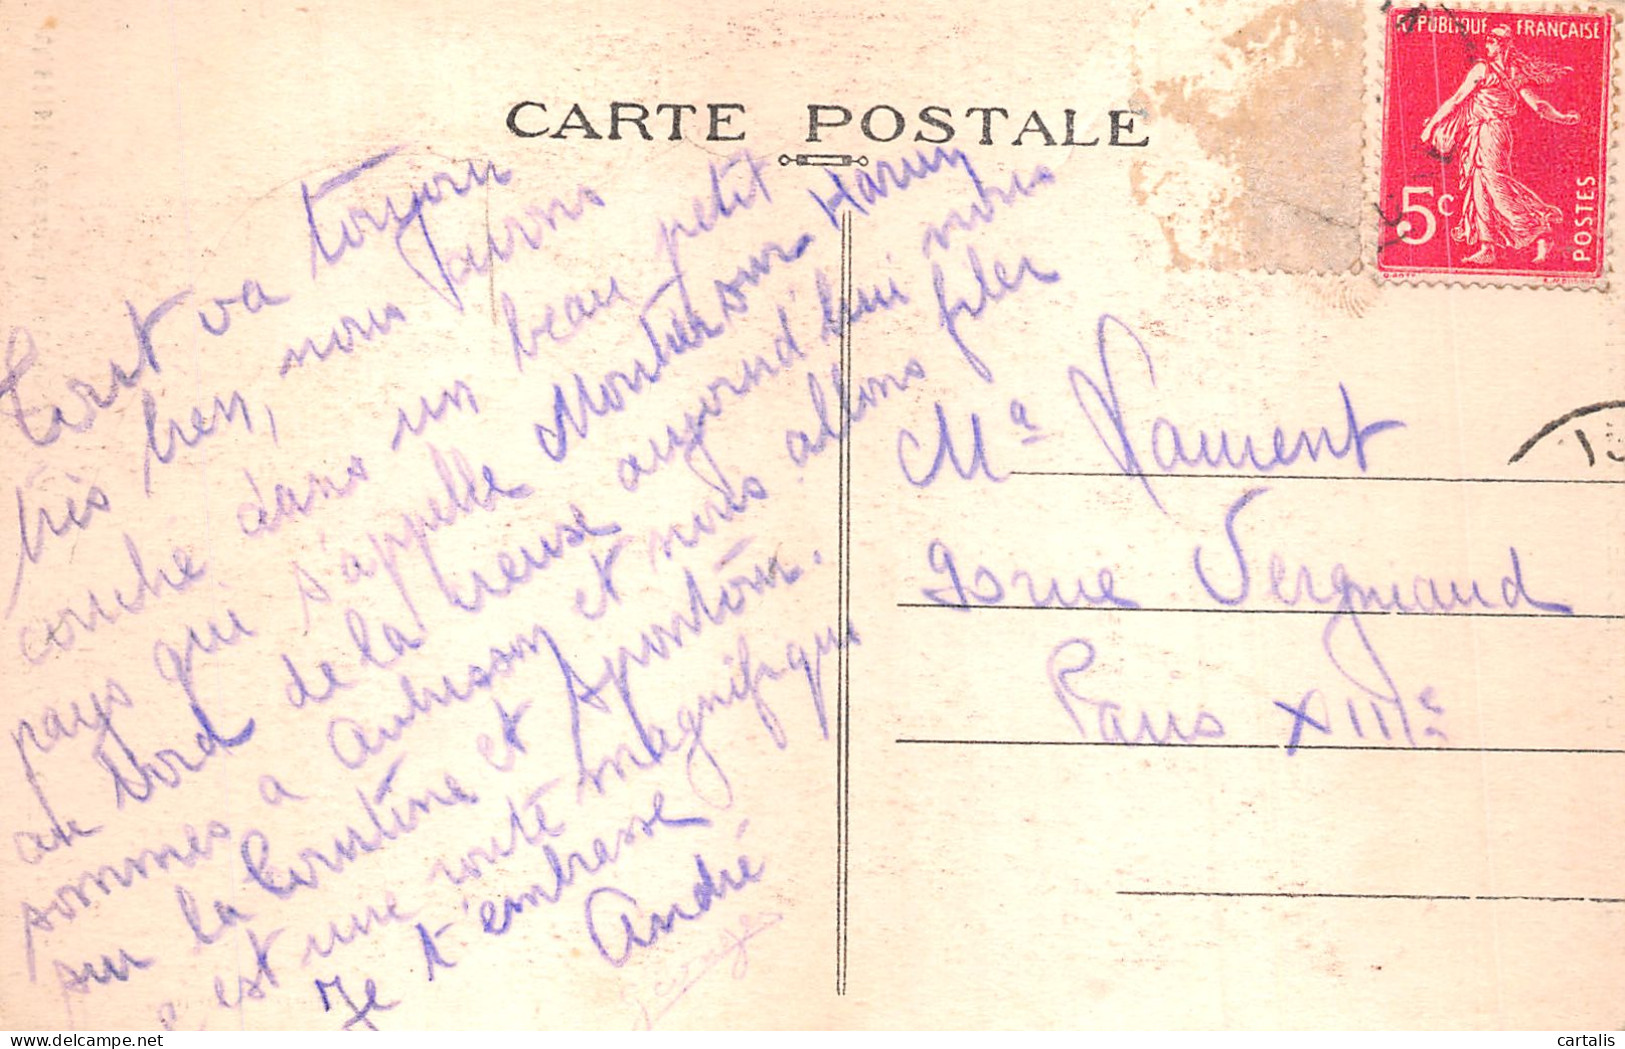 CARTE POSTALE
RÉPUBLIQUE FRANÇAISE
5c
POSTES
Tout va toujours
très bien, nous avons
couché dans un beau petit
pays qui s'appelle
au bord de la creuse aujourd'hui nous
sommes a aubusson et nous allons filer
sur la Courtine et
c'est une route magnifique
Je t'embrasse
André
Vaurent
rue Vergniaud
Paris XIIIe
cartalis